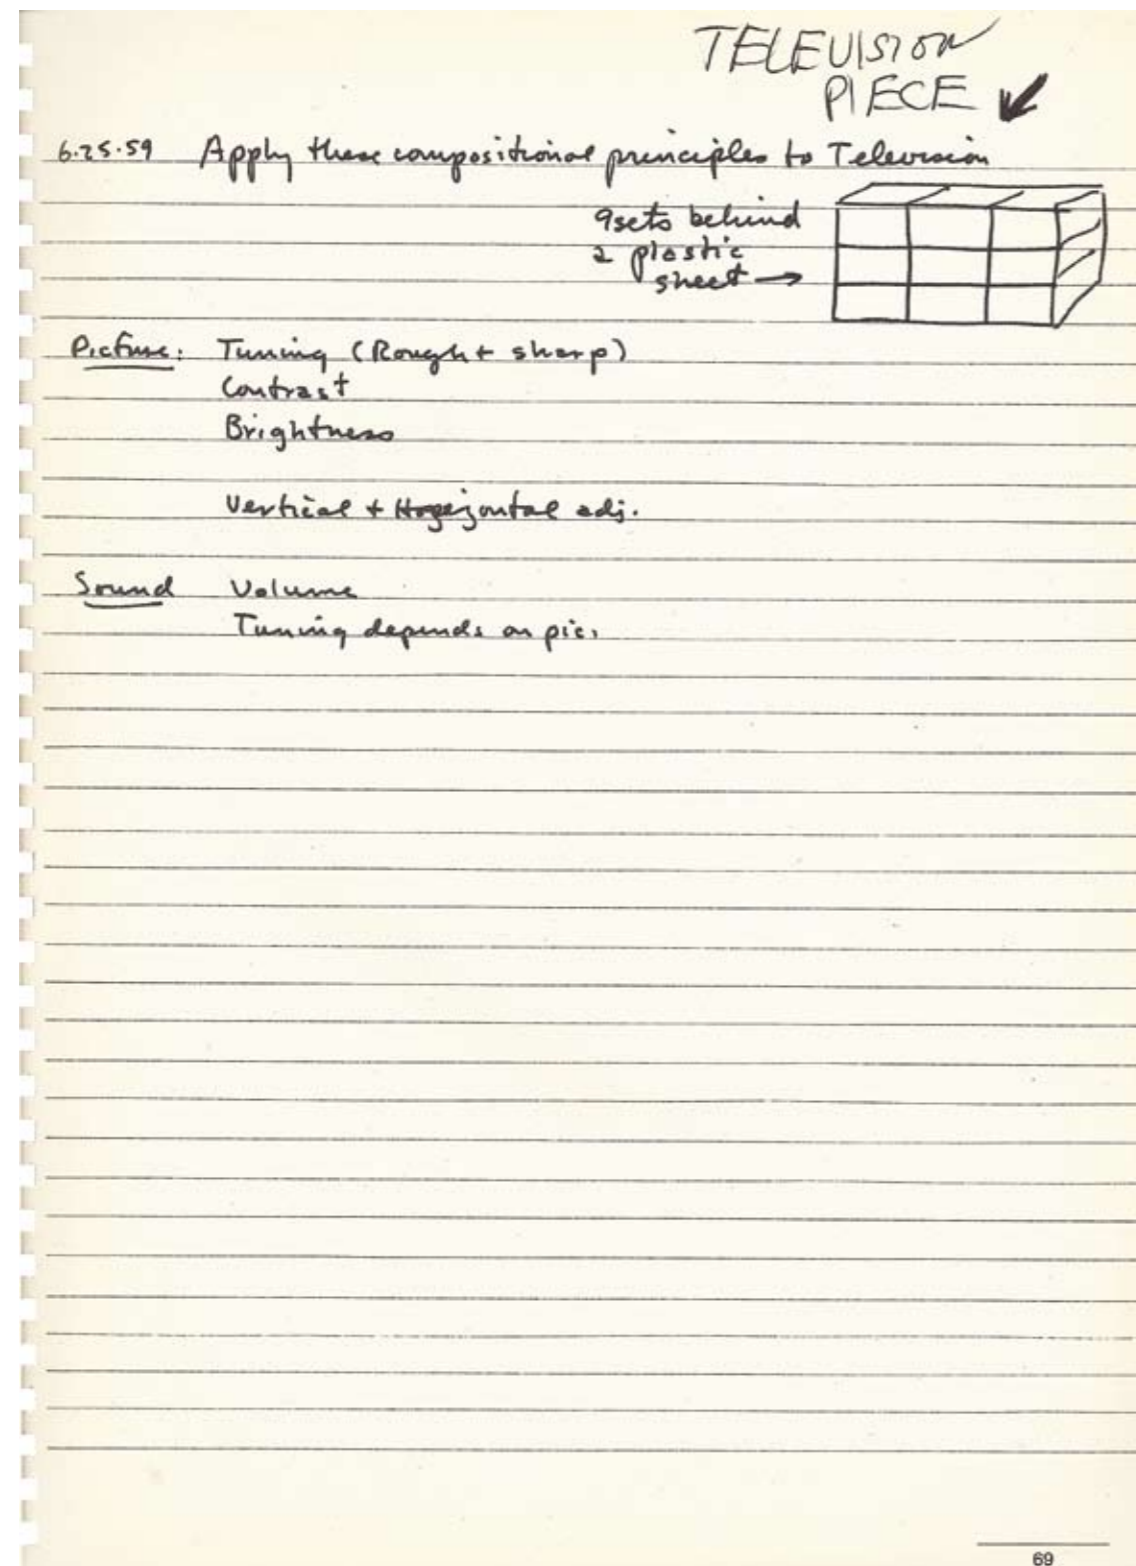 TELEVISION
PIECE
6.25.59 Apply these compositional principles to Television
9 sets behind
a plastic
sheet →
Picture: Tuning (Rough + sharp)
Contrast
Brightness
Vertical + Horizontal adj.
Sound Volume
Tuning depends on pic.
69